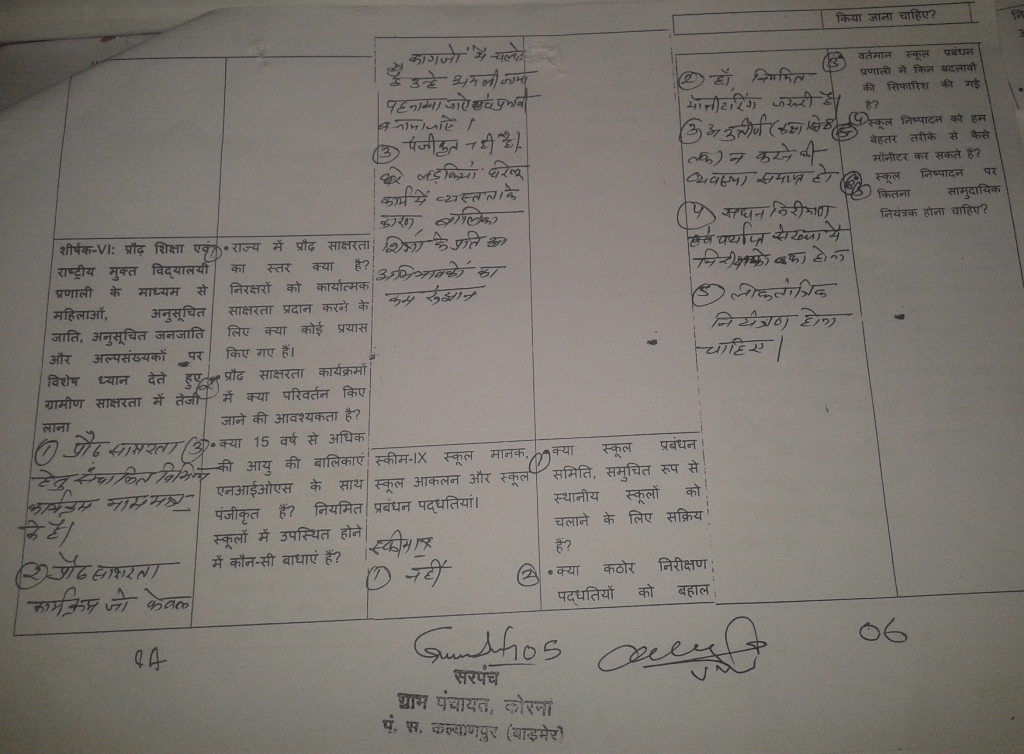 किया जाना चाहिए?
शीर्षक-VI: प्रौढ़ शिक्षा एवं
राष्ट्रीय मुक्त विद्यालयी
प्रणाली के माध्यम से
महिलाओं, अनुसूचित
जाति, अनुसूचित जनजाति
और अल्पसंख्यकों पर
विशेष ध्यान देते हुए
ग्रामीण साक्षरता में तेजी
लाना
① प्रौढ साक्षरता
हेतु संचालित विभिन्न
कार्यक्रम नाम मात्र
के है।
② प्रौढ साक्षरता
कार्यक्रम जो केवल
① • राज्य में प्रौढ़ साक्षरता
का स्तर क्या है?
निरक्षरों को कार्यात्मक
साक्षरता प्रदान करने के
लिए क्या कोई प्रयास
किए गए हैं।
② • प्रौढ़ साक्षरता कार्यक्रमों
में क्या परिवर्तन किए
जाने की आवश्यकता है?
③ • क्या 15 वर्ष से अधिक
की आयु की बालिकाएं
एनआईओएस के साथ
पंजीकृत हैं? नियमित
स्कूलों में उपस्थित होने
में कौन-सी बाधाएं हैं?
कागजों में चलते
है उन्हे अमलीजामा
पहनाया जाऐ एवं प्रभावी
बनाया जाऐ।
③ पंजीकृत नही है।
लड़कियां घरेलू
कार्य में व्यस्तता के
कारण बालिका
शिक्षा के प्रति का
अभिभावकों का
कम रुझान
स्कीम-IX स्कूल मानक,
स्कूल आकलन और स्कूल
प्रबंधन पद्धतियां।
स्कीम IX
① नहीं
① • क्या स्कूल प्रबंधन
समिति, समुचित रूप से
स्थानीय स्कूलों को
चलाने के लिए सक्रिय
हैं?
② • क्या कठोर निरीक्षण
पद्धतियों को बहाल
② हाँ, नियमित
मोनीटरिंग जरूरी है।
③ अनुत्तीर्ण (कक्षा
तक) न करने की
व्यवस्था समाप्त हो।
④ सघन निरीक्षण
एवं पर्याप्त संख्या में
निरीक्षको का होना
⑤ लोकतांत्रिक
नियंत्रण होना
चाहिए।
③ वर्तमान स्कूल प्रबंधन
प्रणाली में किन बदलावों
की सिफारिश की गई
है?
④ स्कूल निष्पादन को हम
बेहतर तरीके से कैसे
मॉनीटर कर सकते हैं?
⑤ स्कूल निष्पादन पर
कितना सामुदायिक
नियंत्रक होना चाहिए?
06
सरपंच
ग्राम पंचायत, कोरना
पं. स. कल्याणपुर (बाड़मेर)